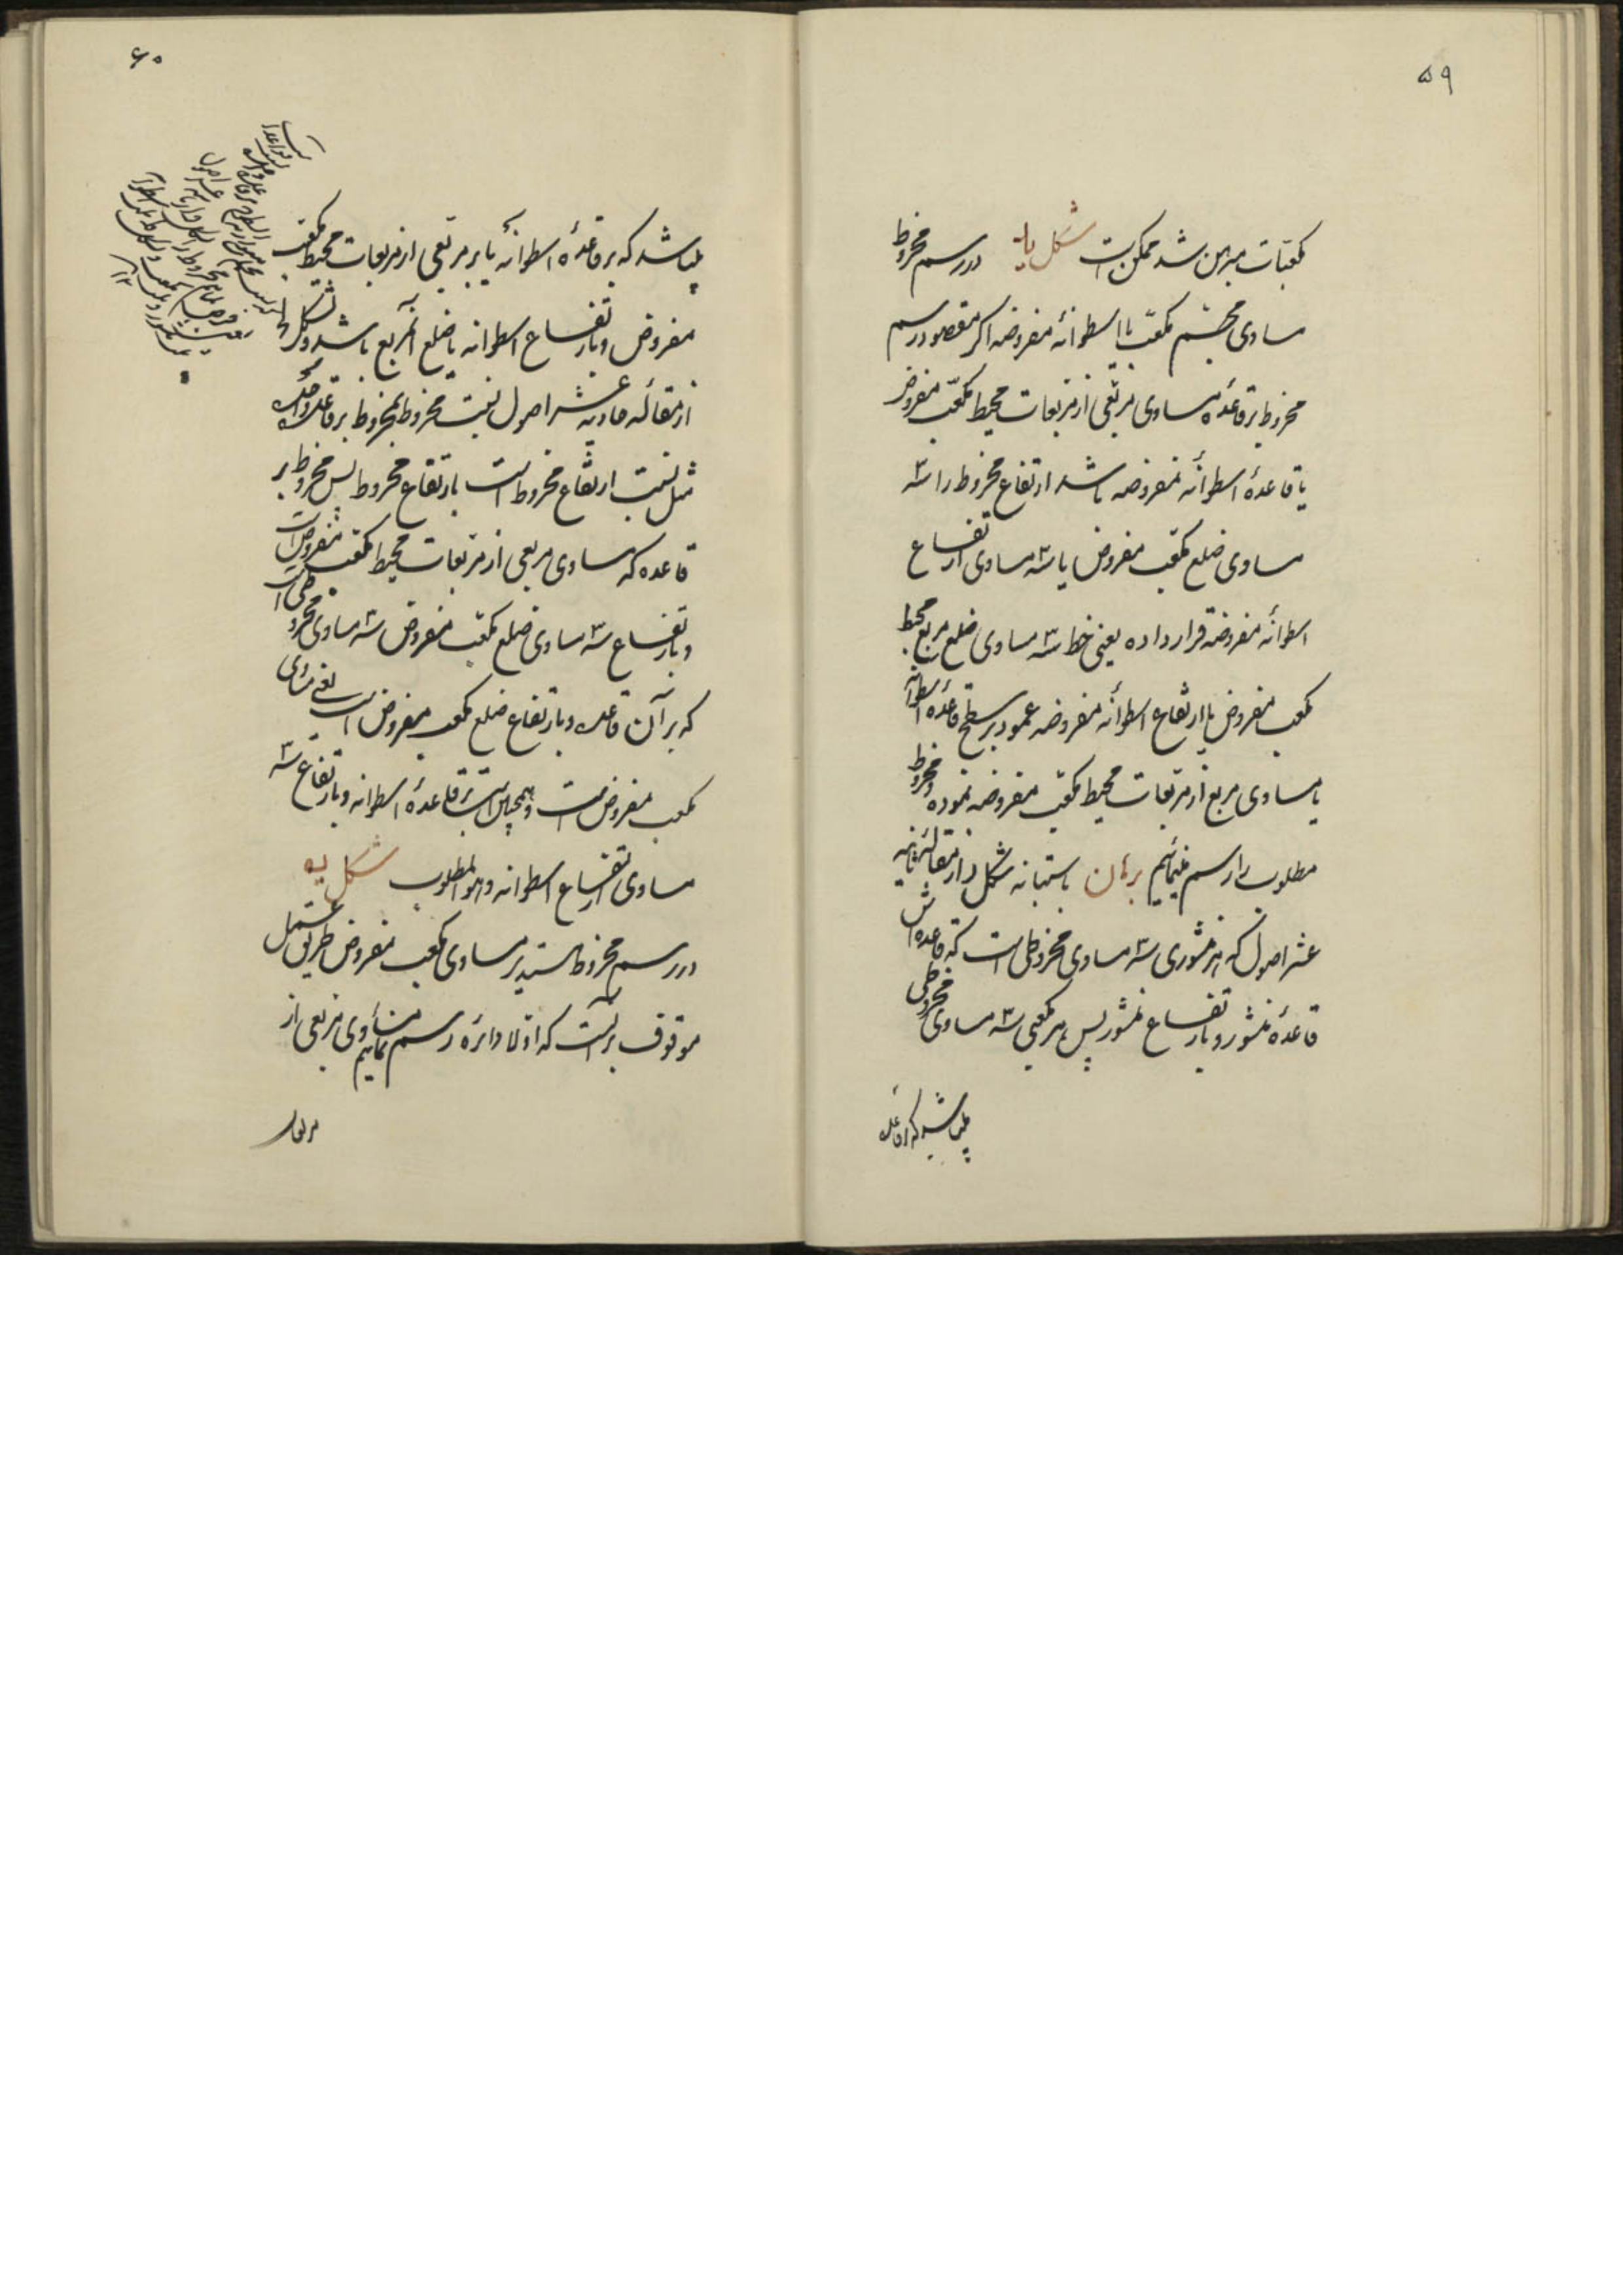 ۵۹
مکعبات مبرهن شد ممکن است شکل ید در رسم مخروط
مساوی مجسم مکعب یا اسطوانهٔ مفروضه اگر مقصود رسم
مخروط بر قاعدهٔ مساوی مربعی از مربعات محیط مکعب مفروض
یا قاعدهٔ اسطوانه مفروضه باشد ارتفاع مخروط را سه
مساوی ضلع مکعب مفروض یا سه مساوی ارتفاع
اسطوانه مفروضه قرار داده یعنی خط سه مساوی ضلع مربع محیط
مکعب مفروض یا ارتفاع اسطوانه مفروضه عمود بر سطح قاعدهٔ اسطوانه
یا مساوی مربع از مربعات محیط مکعب مفروضه نموده و مخروط
مطلوب را رسم مینمائیم برهان باستبانه شکل از مقاله ثانیه
عشر اصول که هر منشوری سه مساوی مخروطی است که قاعده‌اش
قاعدهٔ منشور و بارتفاع منشور پس هر مکعبی سه مساوی مخروطی
میباشد که بر قاعده
۶۰
میباشد که بر قاعدهٔ اسطوانه یا بر مربعی از مربعات محیط مکعب
مفروض و بارتفاع اسطوانه یا ضلع آنمربع باشد و بشکل
از مقاله حادیه عشر اصول نسبت مخروط بمخروط بر قاعده واحده
مثل نسبت ارتفاع مخروط است بارتفاع مخروط پس مخروط بر
قاعده که مساوی مربعی از مربعات محیط مکعب مفروض است
و بارتفاع سه مساوی ضلع مکعب مفروض سه مساوی مخروطی است
که بر آن قاعده و بارتفاع ضلع مکعب مفروض است یعنی مساوی
مکعب مفروض است و همچنین است بر قاعدهٔ اسطوانه و بارتفاع سه
مساوی ارتفاع اسطوانه و هو المطلوب شکل یه
در رسم مخروط مستدیر مساوی مکعب مفروض طریق عمل
موقوف بر آنست که اولا دائره رسم نمائیم مساوی مربعی از
مربعات